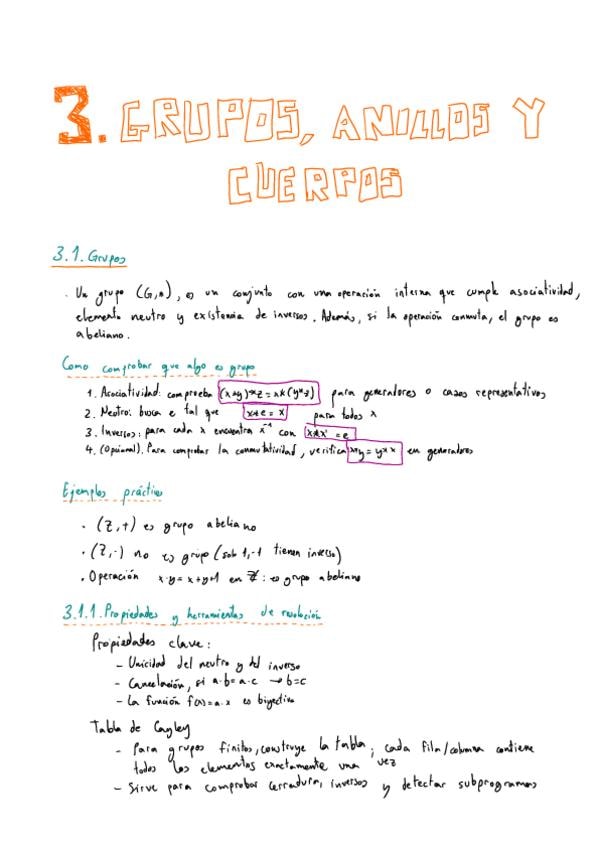 3. GRUPOS, ANILLOS Y
CUERPOS
3.1. Grupos
. Un grupo (G,*), es un conjunto con una operación interna que cumple asociatividad,
elemento neutro y existencia de inversos. Además, si la operación conmuta, el grupo es
abeliano.
Como comprobar que algo es grupo
1. Asociatividad: comprueba (x*y)*z = x*(y*z) para generadores o casos representativos
2. Neutro: busca e tal que x*e = x para todos x
3. Inversos: para cada x encuentra x⁻¹ con x*x' = e
4. (Opcional). Para comprobar la conmutatividad, verifica x*y = y*x en generadores
Ejemplos prácticos
. (Z,+) es grupo abeliano
. (Z,·) no es grupo (solo 1,-1 tienen inverso)
. Operación x·y = x+y+1 en Z: es grupo abeliano
3.1.1. Propiedades y herramientas de resolución
Propiedades clave:
- Unicidad del neutro y del inverso
- Cancelación, si a·b = a·c → b=c
- La función f(x) = a·x es biyectiva
Tabla de Cayley
- Para grupos finitos, construye la tabla; cada fila/columna contiene
todos los elementos exactamente una vez
- Sirve para comprobar cerradura, inversos y detectar subprogramas